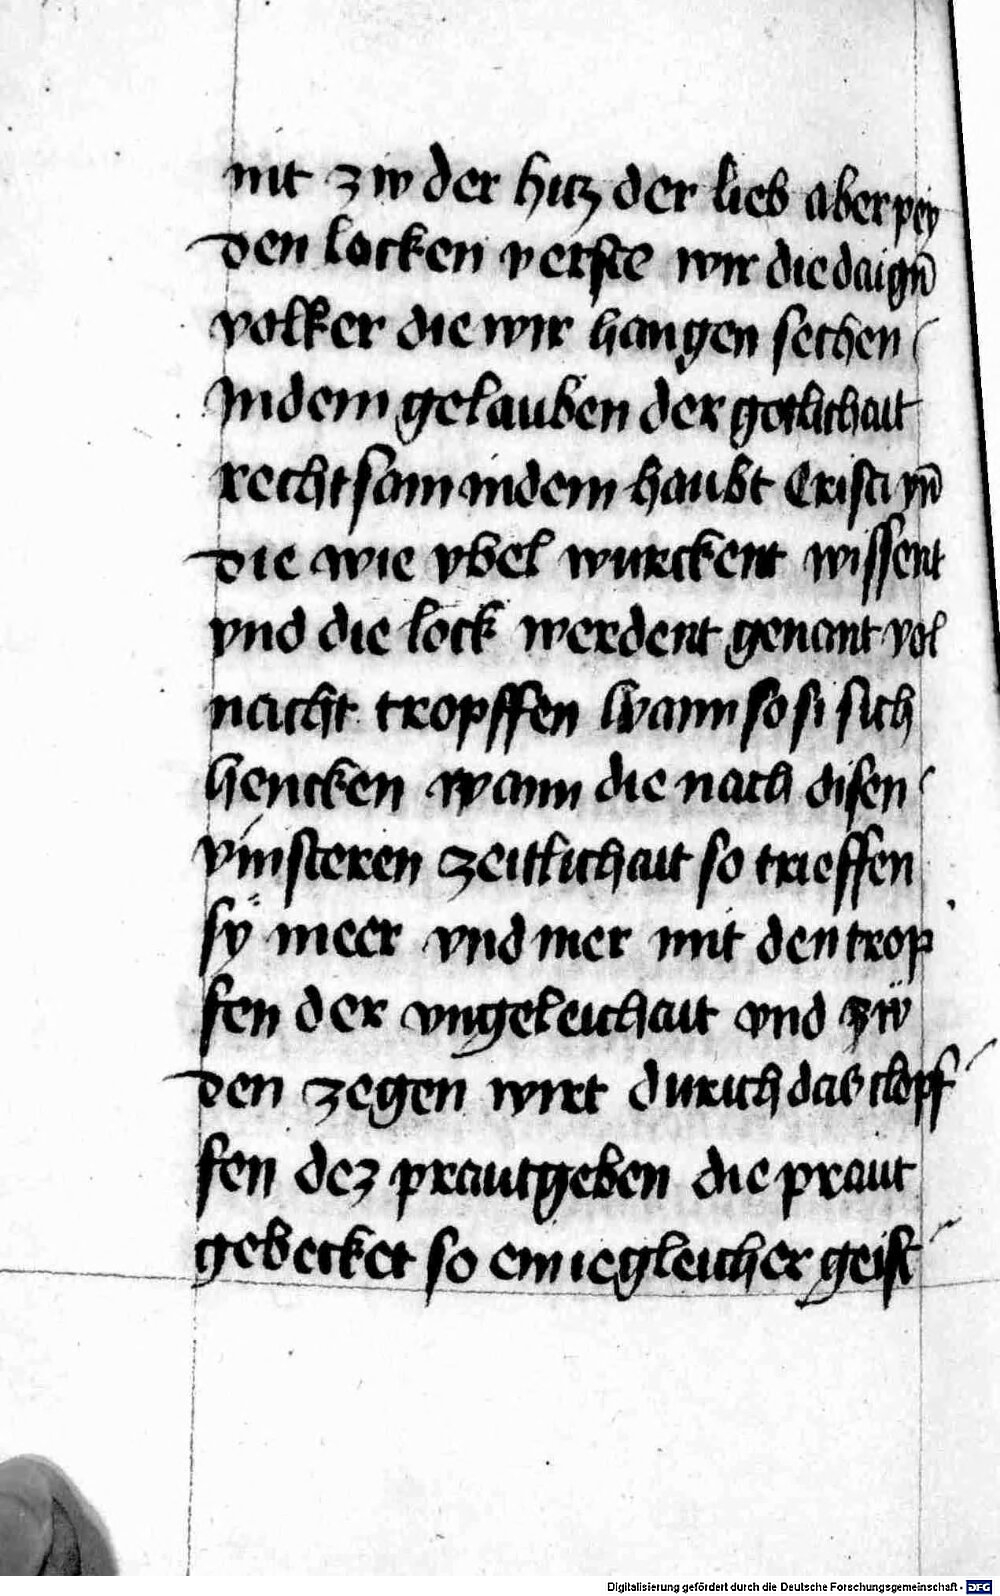 nit zw der hitz der lieb aber pey
den locken verste wir die daign̄
volker die wir hangen sechen
Indem gelauben der gotlichait
recht sam indem haubt Cristi vn̄
die wie vbel wurckent wissent
vnd die lock werdent genant vol
nacht tropffen wann so si sich
hencken wann die nach disen
vinsteren zeitlichait so trieffen
sÿ meer vnd mer mit den trop
fen der vngeleichait vnd zẅ
den zegen wirt durich das clopf
fen dez prautgeben die praut
gebecket so ein iegleicher geist
Digitalisierung gefördert durch die Deutsche Forschungsgemeinschaft - DFG